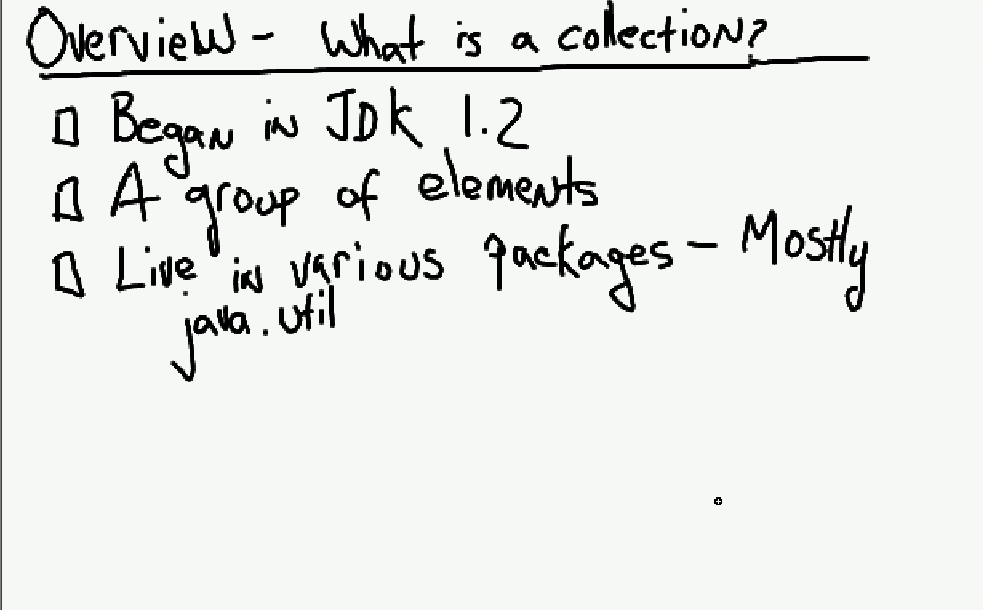 Overview - What is a collection?
Began in JDK 1.2
A group of elements
Live in various packages - Mostly
java.util